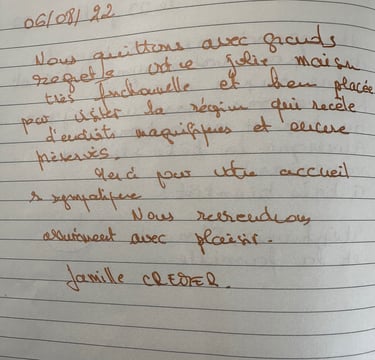 06/08/22
Nous quittons avec grands
regrets votre jolie maison
très fonctionnelle et bien placée
pour visiter la région qui recèle
d'endroits magnifiques et encore
préservés.
Merci pour votre accueil
si sympathique
Nous reviendrons
assurément avec plaisir.
famille